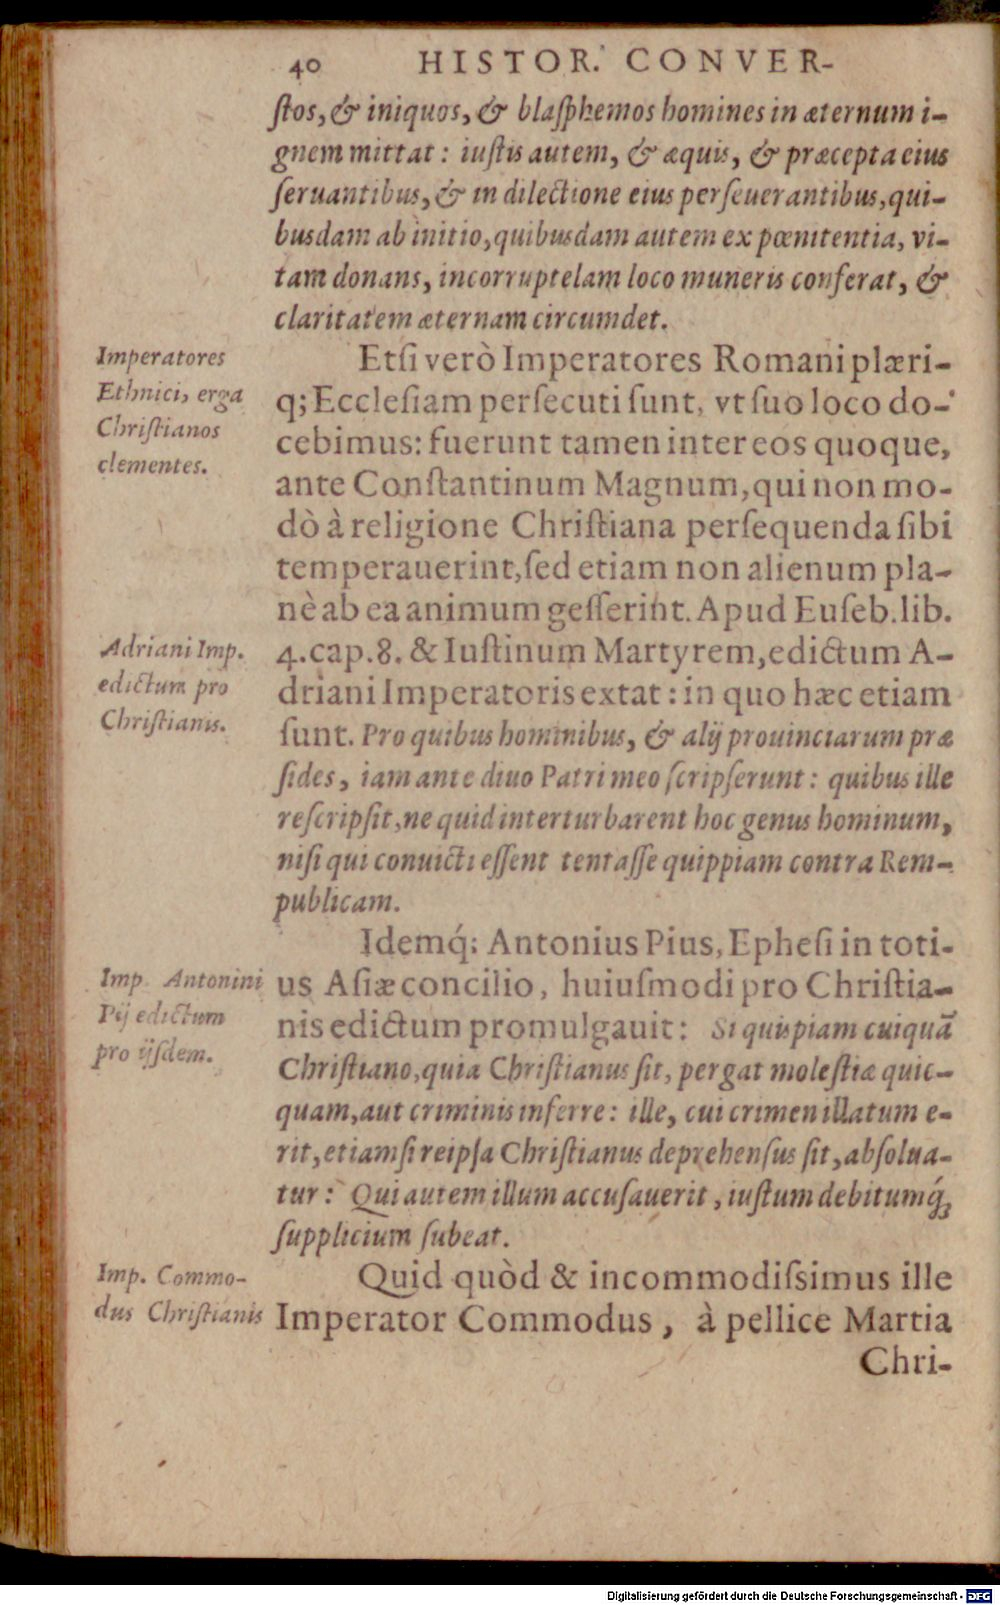 40 HISTOR. CONVER-
ſtos, & iniquos, & blaſphemos homines in æternum i-
gnem mittat: iuſtis autem, & æquis, & præcepta eius
ſeruantibus, & in dilectione eius perſeuerantibus, qui-
busdam ab initio, quibusdam autem ex pœnitentia, vi-
tam donans, incorruptelam loco muneris conferat, &
claritatem æternam circumdet.
Imperatores
Ethnici, erga
Chriſtianos
clementes.
Etſi verò Imperatores Romani plæri-
q; Eccleſiam perſecuti ſunt, vt ſuo loco do-
cebimus: fuerunt tamen inter eos quoque,
ante Conſtantinum Magnum, qui non mo-
dò à religione Chriſtiana perſequenda ſibi
temperauerint, ſed etiam non alienum pla-
nè ab ea animum geſſerint. Apud Euſeb. lib.
Adriani Imp.
edictum pro
Chriſtianis.
4. cap. 8. & Iuſtinum Martyrem, edictum A-
driani Imperatoris extat: in quo hæc etiam
ſunt. Pro quibus hominibus, & alij prouinciarum præ
ſides, iam ante diuo Patri meo ſcripſerunt: quibus ille
reſcripſit, ne quid interturbarent hoc genus hominum,
niſi qui conuicti eſſent tentaſſe quippiam contra Rem-
publicam.
Idemq́; Antonius Pius, Epheſi in toti-
Imp. Antonini
Pij edictum
pro ijſdem.
us Aſiæ concilio, huiuſmodi pro Chriſtia-
nis edictum promulgauit: Si quiſpiam cuiquã
Chriſtiano, quia Chriſtianus ſit, pergat moleſtiæ quic-
quam, aut criminis inferre: ille, cui crimen illatum e-
rit, etiamſi reipſa Chriſtianus deprehenſus ſit, abſolua-
tur: Qui autem illum accuſauerit, iuſtum debitumq́;
ſupplicium ſubeat.
Imp. Commo-
dus Chriſtianis
Quid quòd & incommodiſsimus ille
Imperator Commodus, à pellice Martia
Chri-
Digitalisierung gefördert durch die Deutsche Forschungsgemeinschaft - DFG